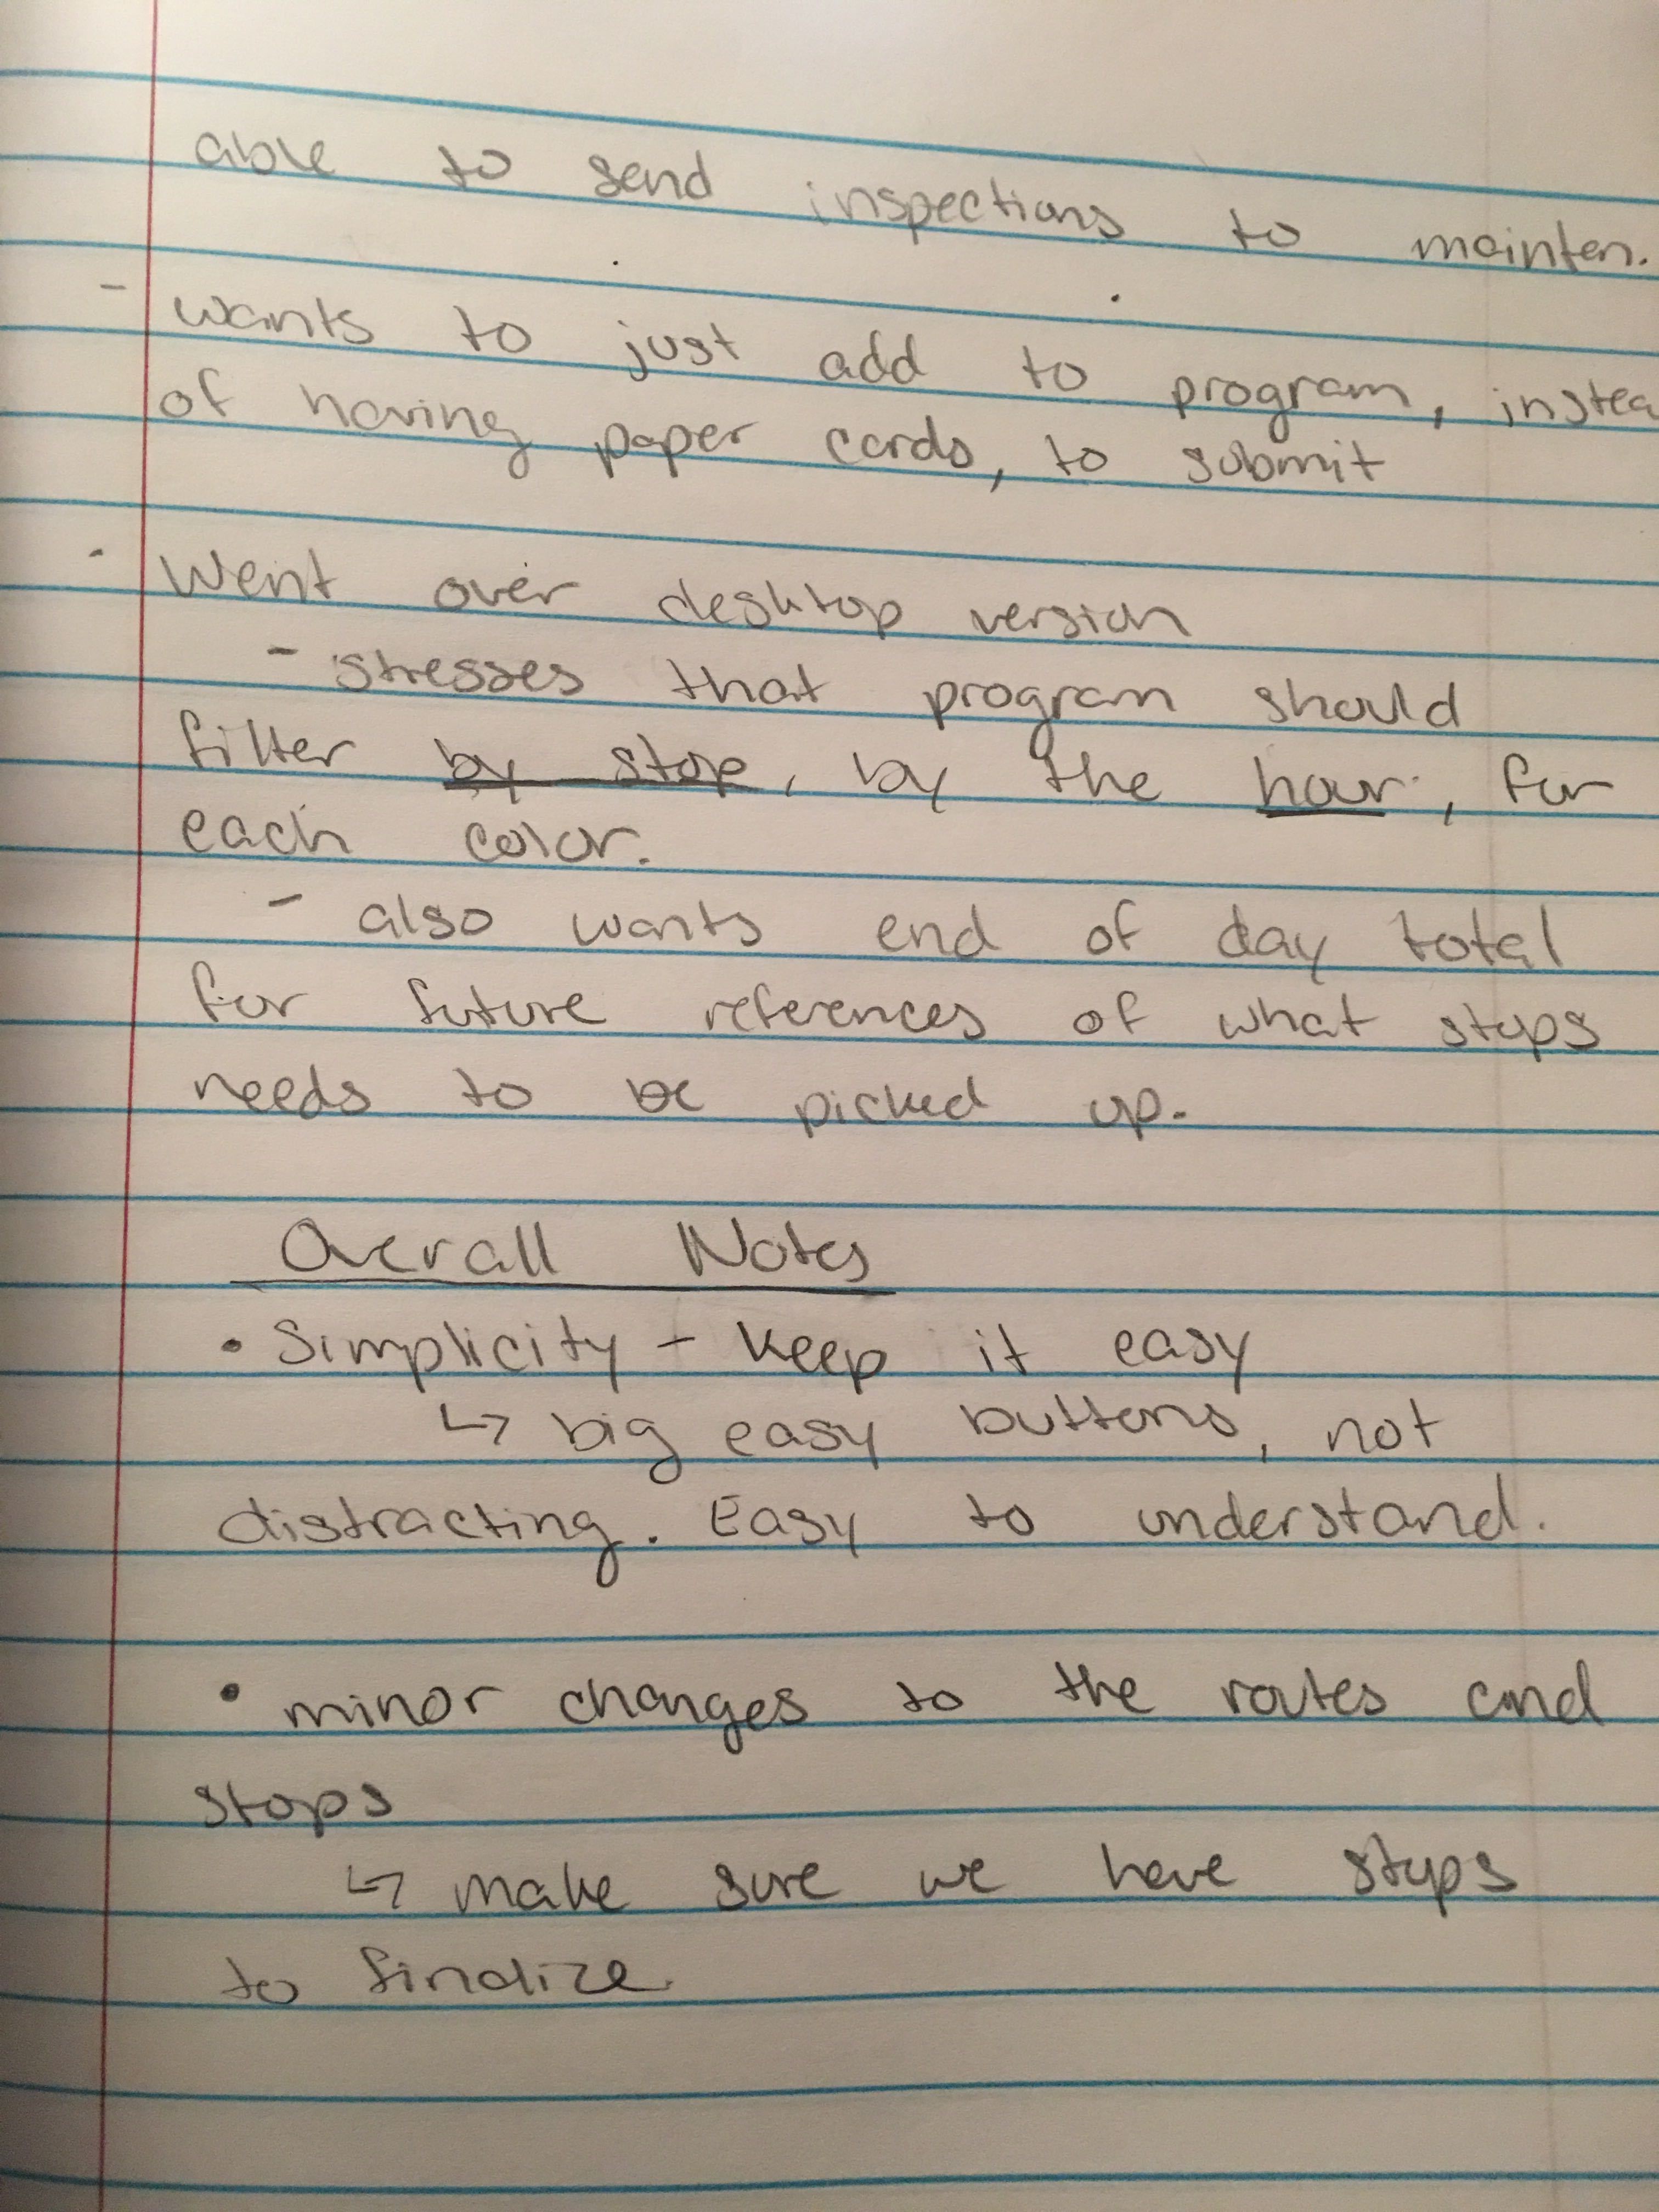 able to send inspections to mainten.
- wants to just add to program, instea
of having paper cards, to submit
- Went over desktop version
- stresses that program should
filter by stop, by the hour, for
each color.
- also wants end of day total
for future references of what stops
needs to be picked up.
Overall Notes
• Simplicity - Keep it easy
↳ big easy buttons, not
distracting. Easy to understand.
• minor changes to the routes and
stops
↳ make sure we have stops
to finalize